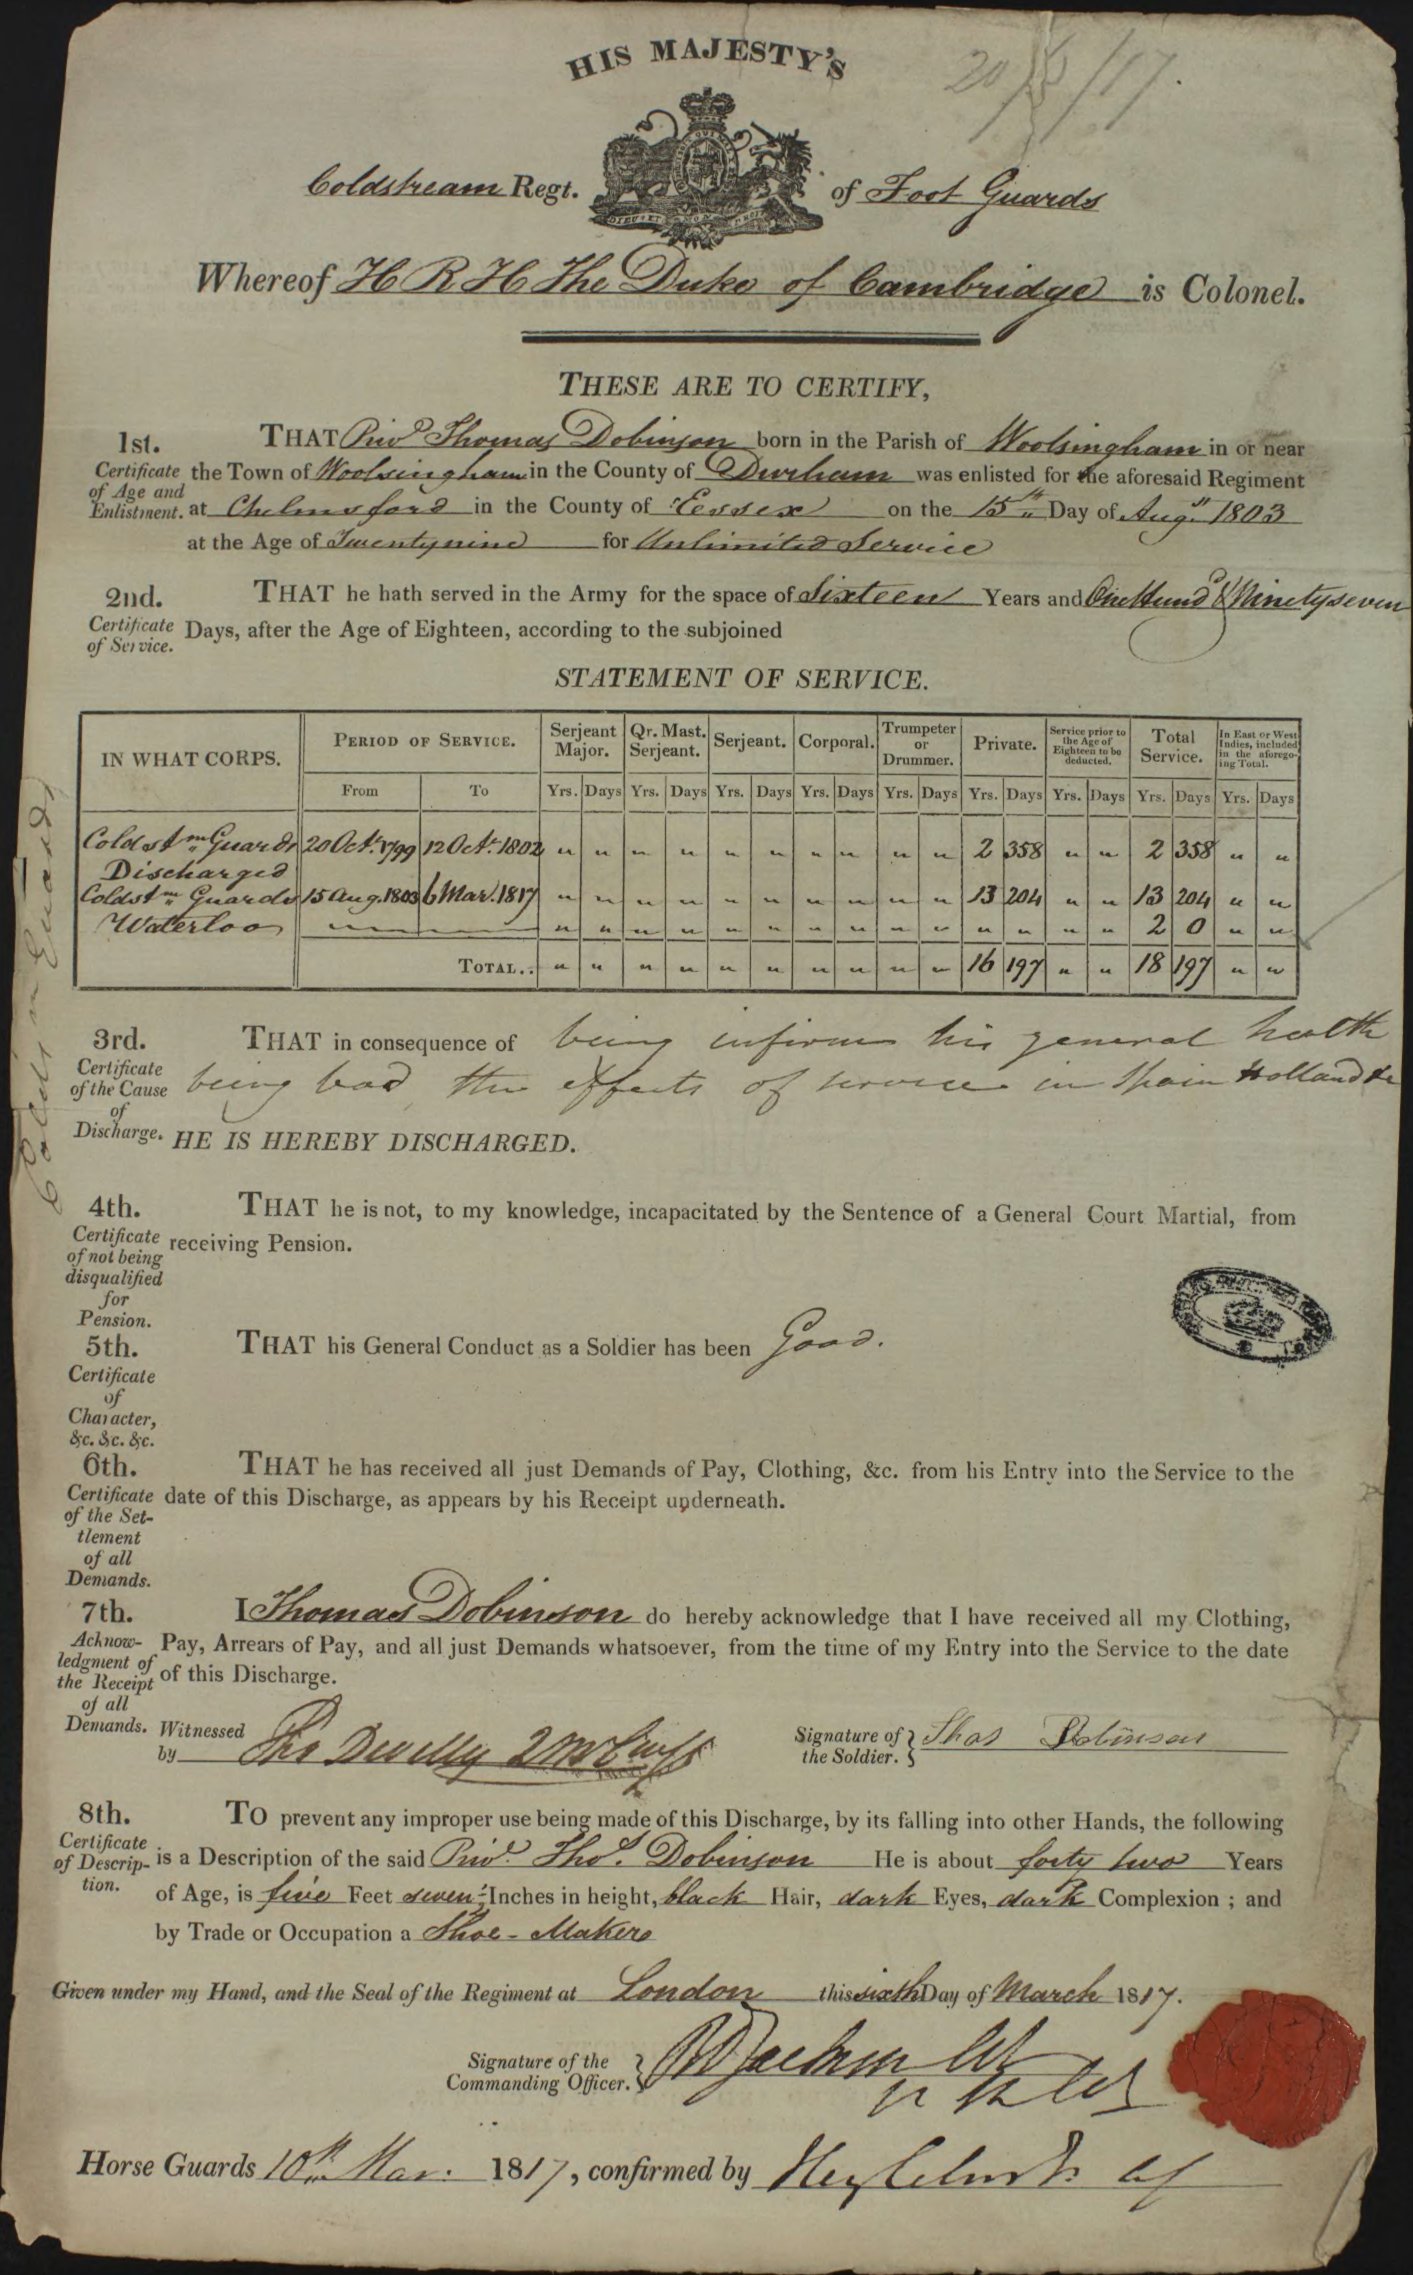 HIS MAJESTY'S
20/5/17.
Coldstream Regt. of Foot Guards
DIEU ET MON DROIT
Whereof H R H The Duke of Cambridge is Colonel.
THESE ARE TO CERTIFY,
1st. THAT Privt Thomas Dobinson born in the Parish of Woolsingham in or near
Certificate the Town of Woolsingham in the County of Durham was enlisted for the aforesaid Regiment
of Age and
Enlistment. at Chelmsford in the County of Essex on the 15th Day of Augst 1803
at the Age of Twentynine for Unlimited Service
2nd. THAT he hath served in the Army for the space of Sixteen Years and One Hund & Ninetyseven
Certificate Days, after the Age of Eighteen, according to the subjoined
of Service.
STATEMENT OF SERVICE.
IN WHAT CORPS. PERIOD OF SERVICE. Serjeant Major. Qr. Mast. Serjeant. Serjeant. Corporal. Trumpeter or Drummer. Private. Service prior to the Age of Eighteen to be deducted. Total Service. In East or West Indies, included in the aforegoing Total.
From To Yrs. Days Yrs. Days Yrs. Days Yrs. Days Yrs. Days Yrs. Days Yrs. Days Yrs. Days Yrs. Days
Coldstm Guards 20 Oct. 1799 12 Oct. 1802 " " " " " " " " " " 2 358 " " 2 358 " "
Discharged
Coldstm Guards 15 Aug. 1803 6 Mar. 1817 " " " " " " " " " " 13 204 " " 13 204 " "
Waterloo " " " " " " " " " " " " " " " 2 0 " "
TOTAL.. " " " " " " " " " " 16 197 " " 18 197 " "
Coldsm Guards
3rd. THAT in consequence of being infirm his general health
Certificate
of the Cause being bad the effects of service in Spain Holland &c
of
Discharge. HE IS HEREBY DISCHARGED.
4th. THAT he is not, to my knowledge, incapacitated by the Sentence of a General Court Martial, from
Certificate receiving Pension.
of not being
disqualified
for
Pension.
5th. THAT his General Conduct as a Soldier has been Good.
Certificate
of
Character,
&c. &c. &c.
6th. THAT he has received all just Demands of Pay, Clothing, &c. from his Entry into the Service to the
Certificate date of this Discharge, as appears by his Receipt underneath.
of the Set-
tlement
of all
Demands.
7th. I Thomas Dobinson do hereby acknowledge that I have received all my Clothing,
Acknow- Pay, Arrears of Pay, and all just Demands whatsoever, from the time of my Entry into the Service to the date
ledgment of
the Receipt of this Discharge.
of all
Demands. Witnessed by Tho Signature of the Soldier. Thos Dobinson
8th. TO prevent any improper use being made of this Discharge, by its falling into other Hands, the following
Certificate
of Descrip- is a Description of the said Privt. Thos. Dobinson He is about forty two Years
tion. of Age, is five Feet seven Inches in height, black Hair, dark Eyes, dark Complexion ; and
by Trade or Occupation a Shoe-Maker
Given under my Hand, and the Seal of the Regiment at London this sixth Day of March 1817.
Signature of the
Commanding Officer.
Horse Guards 10th Mar. 1817, confirmed by